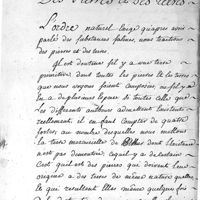 Des Pierres et des terres
L'ordre naturel exige qu'apres avoir
parlé des substances salines, nous traitions
des pierres et des terres
Il est douteux s'il y a une terre
primitive dont toutes les pierres et les terres
que nous voyons soient composées, ou s'il y
en a de plusieurs especes de toutes celles que
les differents auteurs admettent
reellement il en faut compter de quatre
sortes, au nombre desquelles nous mettons
la terre dont l'existence
n'est pas demontrée
c'est qu'il est des pierres que doivent leur
origine a des terres de même nature qu'elles
que resultent elles même quelques fois